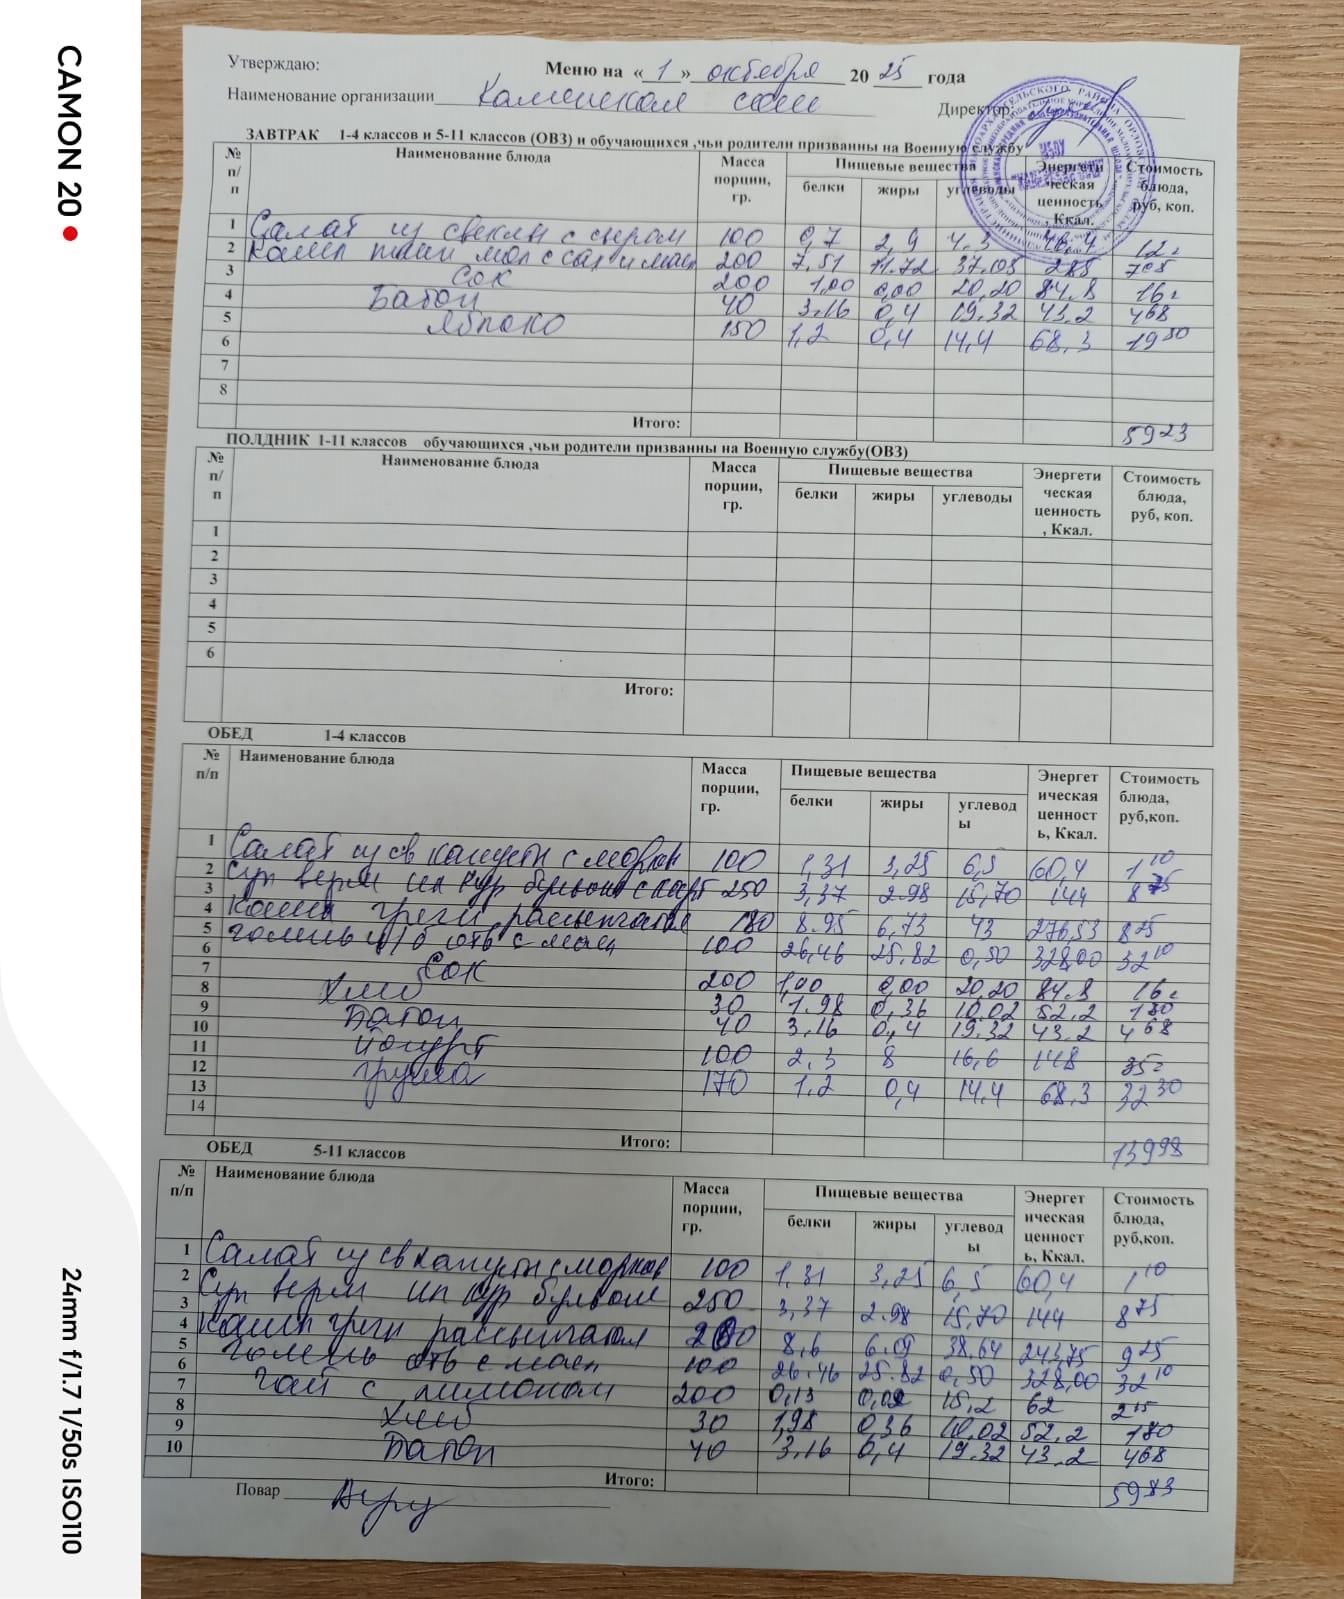 CAMON 20
24mm f/1.7 1/50s ISO110
Утверждаю:
Меню на «1» октября 2025 года
Наименование организации Каменская сош
Директор:
ЗАВТРАК 1-4 классов и 5-11 классов (ОВЗ) и обучающихся ,чьи родители призванны на Военную службу
№ п/п Наименование блюда Масса порции, гр. Пищевые вещества Энергетическая ценность, Ккал. Стоимость блюда, руб, коп.
белки жиры углеводы
1 Салат из свеклы с сыром 100 0,7 2,9 4.3 12=
2 Каша пшен мол с сах и масл 200 7.51 11.72 37.05 285 7 05
3 Сок 200 1,00 0,00 20,20 84.8 16=
4 Батон 40 3.16 0,4 19.32 43.2 4 68
5 Яблоко 150 1,2 0,4 14,4 68,3 19 50
6
7
8
Итого: 59 23
ПОЛДНИК 1-11 классов обучающихся ,чьи родители призванны на Военную службу(ОВЗ)
№ п/п Наименование блюда Масса порции, гр. Пищевые вещества Энергетическая ценность, Ккал. Стоимость блюда, руб, коп.
белки жиры углеводы
1
2
3
4
5
6
Итого:
ОБЕД 1-4 классов
№ п/п Наименование блюда Масса порции, гр. Пищевые вещества Энергетическая ценность, Ккал. Стоимость блюда, руб,коп.
белки жиры углеводы
1 Салат из св капусты с морков 100 1,31 3,25 6,5 60,4 1 10
2 Суп верм на кур бульоне с карт 250 3,37 2.98 15,70 144 8 75
3 Каша греч рассыпчатая 180 8.95 6,73 43 276,53 8 25
4 голень ц/б отв с масл 100 26,46 25.82 0,50 328,00 32 10
5 Сок 200 1,00 0,00 20,20 84.8 16=
6 Хлеб 30 1.98 0,36 10.02 52,2 1 80
7 Батон 40 3,16 0,4 19.32 43.2 4 68
8 Йогурт 100 2,3 8 16,6 148 35=
9 груша 170 1.2 0,4 14,4 68,3 32 30
10
11
12
13
14
Итого: 139 98
ОБЕД 5-11 классов
№ п/п Наименование блюда Масса порции, гр. Пищевые вещества Энергетическая ценность, Ккал. Стоимость блюда, руб,коп.
белки жиры углеводы
1 Салат из св капусты с морков 100 1,31 3,25 6,5 60,4 1 10
2 Суп верм на кур бульоне 250 3,37 2.98 15,70 144 8 75
3 Каша греч рассыпчатая 200 8,6 6.09 38.64 243,75 9 25
4 голень отв с масл 100 26.46 25.82 0,50 328,00 32 10
5 Чай с лимоном 200 0,13 0,02 15,2 62 2 15
6 Хлеб 30 1,98 0,36 10,02 52,2 1 80
7 Батон 40 3.16 0,4 19.32 43.2 4 68
8
9
10
Итого: 59 83
Повар